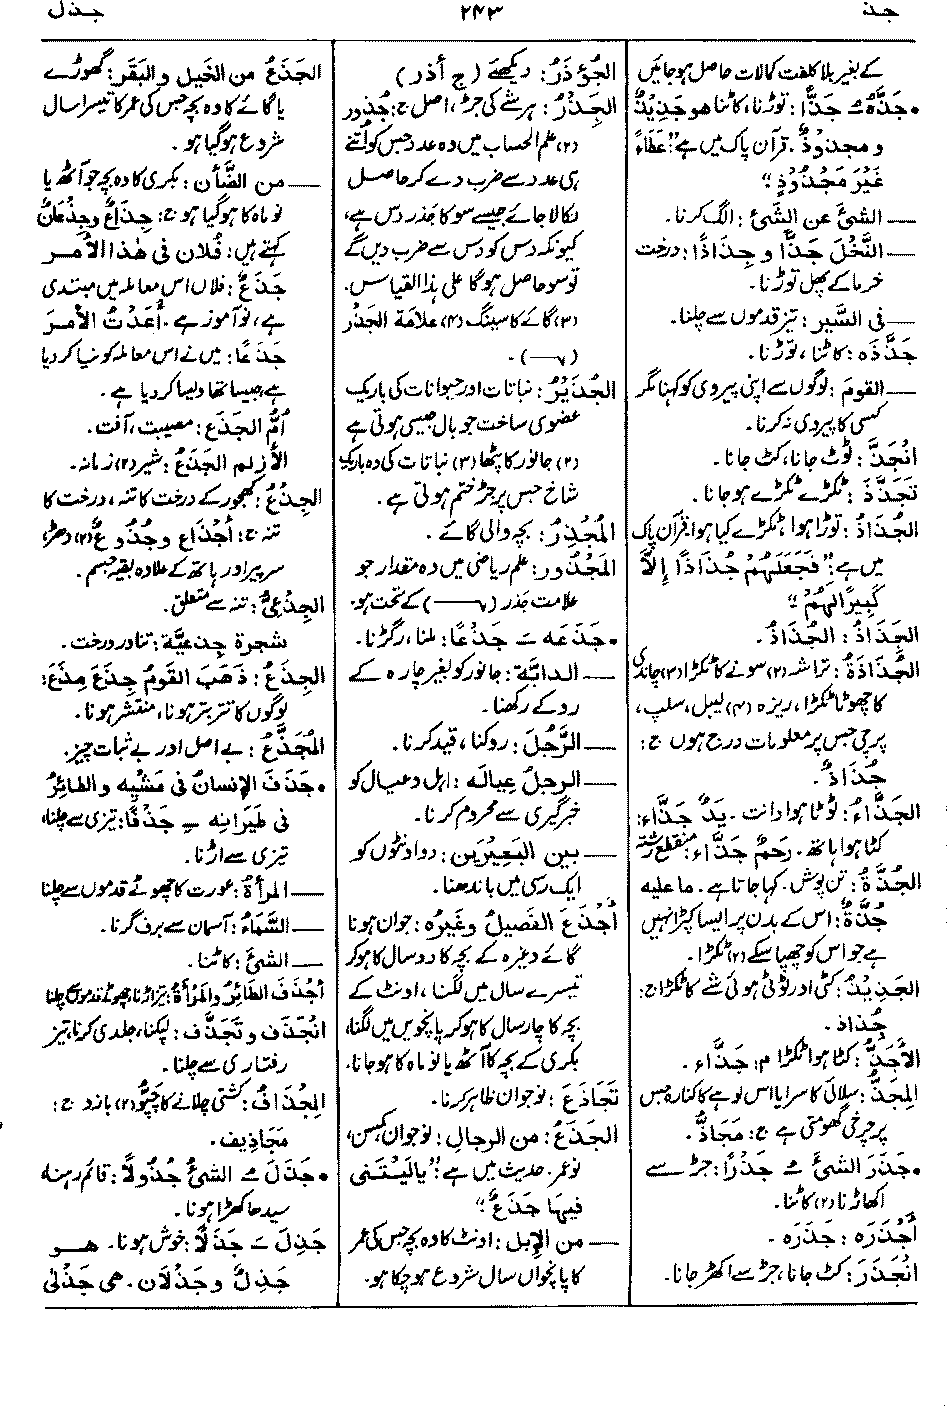 جذ
۲۴۳
جذل
کے بغیر بلا کلفت کمالات حاصل ہو جائیں
• جَذَّهُ ـُ جَذًّا: توڑنا، کاٹنا ھو جَذِیْذٌ
و مجذوذٌ۔ قرآن پاک میں ہے "عَطَاءً
غَیْرَ مَجْذُوْذٍ"
— الشیَٔ عن الشَّیْٔ: الگ کرنا۔
— النَّخْلَ جَذًّا و جِذَاذًا: درخت
خرما کے پھل توڑنا۔
— فی السَّیر: تیز قدموں سے چلنا۔
جَذَّذَہ: کاٹنا، توڑنا۔
— القومَ: لوگوں سے اپنی پیروی کو کہنا مگر
کسی کا پیروی نہ کرنا۔
انْجَذَّ: ٹوٹ جانا، کٹ جانا۔
تَجَذَّذَ: ٹکڑے ٹکڑے ہو جانا۔
الجُذَاذُ: توڑا ہوا، ٹکڑے کیا ہوا قرآن پاک
میں ہے: "فَجَعَلَهُمْ جُذَاذًا إِلَّا
كَبِيرًا لَهُمْ"
الجِذَاذُ: الجُذَاذُ۔
الجُذَاذَةُ: تراشہ (۲) سونے کا ٹکڑا (۳) چاندی
کا چھوٹا ٹکڑا، ریزہ (۴) لیبل، سلپ،
پرچی جس پر معلومات درج ہوں ج:
جُذَاذٌ۔
الجَذَّاءُ: ٹوٹا ہوا دانت۔ یَدٌ جَذَّاء:
کٹا ہوا ہاتھ۔ رَحِمٌ جَذَّاء: منقطع رشتہ
الجُذَّةُ: تن پوش۔ کہا جاتا ہے۔ ما علیه
جُذَّةٌ: اس کے بدن پر ایسا کپڑا نہیں
ہے جو اس کو چھپا سکے (۲) ٹکڑا۔
الجَذِیْذُ: کٹی اور ٹوٹی ہوئی شے کا ٹکڑا ج:
جُذاذ۔
الأَجَذُّ: کٹا ہوا ٹکڑا م: جَذَّاء۔
المِجَذُّ: سلائی کا سرا یا اس لوہے کا کنارہ جس
پر چرخی گھومتی ہے ج: مَجَاذُّ۔
• جَذَرَ الشیَٔ ـُ جَذْرًا: جڑ سے
اکھاڑنا (۲) کاٹنا۔
أَجْذَرَہ: جَذَرَہ۔
انْجَذَرَ: کٹ جانا، جڑ سے اکھڑ جانا۔
الجُؤْذَرُ: دیکھئے (ج أ ذر)
الجِذْرُ: ہر شے کی جڑ، اصل ج: جُذور
(۲) علم الحساب میں وہ عدد جس کو اتنے
ہی عدد سے ضرب دے کر حاصل
نکالا جائے جیسے سو کا جذر دس ہے،
کیونکہ دس کو دس سے ضرب دیں گے
تو سو حاصل ہوگا علی ہذا القیاس۔
(۳) گائے کا سینگ (۴) علامة الجذر
(√)۔
الجُذَیْرُ: نباتات اور حیوانات کی باریک
عضوی ساخت جو بال جیسی ہوتی ہے
(۲) جانور کا پٹھا (۳) نباتات کی وہ باریک
شاخ جس پر جڑ ختم ہوتی ہے۔
المُجْذِرُ: بچہ والی گائے۔
المَجْذُور: علم ریاضی میں وہ مقدار جو
علامت جذر (√) کے تحت ہو۔
• جَذَعَه ـَ جَذْعًا: ملنا، رگڑنا۔
— الدابّةَ: جانور کو بغیر چارہ کے
روکے رکھنا۔
— الرَّجُلَ: روکنا، قید کرنا۔
— الرجلُ عِیالَه: اہل و عیال کو
خبر گیری سے محروم کرنا۔
— بین البَعِیْرَین: دو اونٹوں کو
ایک رسی میں باندھنا۔
أَجْذَعَ الفَصِیلُ وغَیْرُه: جوان ہونا
گائے وغیرہ کے بچہ کا دو سال کا ہو کر
تیسرے سال میں لگنا، اونٹ کے
بچہ کا چار سال کا ہو کر پانچویں میں لگنا،
بکری کے بچہ کا آٹھ یا نو ماہ کا ہو جانا۔
تَجَاذَعَ: نوجوان ظاہر کرنا۔
الجَذَعُ: من الرجالِ: نوجوان، کمسن،
نوعمر۔ حدیث میں ہے: "یالَیْتَنِی
فیها جَذَعٌ"
— من الإبل: اونٹ کا وہ بچہ جس کی عمر
کا پانچواں سال شروع ہو چکا ہو۔
الجَذَعُ من الخَیل والبَقَر: گھوڑے
یا گائے کا وہ بچہ جس کی عمر کا تیسرا سال
شروع ہو گیا ہو۔
— من الضَّأن: بکری کا وہ بچہ جو آٹھ یا
نو ماہ کا ہو گیا ہو ج: جِذَاعٌ وجِذْعَانٌ
کہتے ہیں: فُلان فی هٰذا الأمر
جَذَعٌ: فلاں اس معاملہ میں مبتدی
ہے، نو آموز ہے۔ أَعَدْتُ الأمرَ
جَذَعًا: میں نے اس معاملہ کو نیا کر دیا
ہے جیسا تھا ویسا کر دیا ہے۔
أُمُّ الجَذَع: مصیبت، آفت۔
الأَزْلم الجَذَعُ: شیر (۲) زمانہ۔
الجِذْعُ: کھجور کے درخت کا تنہ، درخت کا
تنہ ج: أَجْذَاع وجُذُوعٌ (۲) دھڑ،
سر پیر اور ہاتھ کے علاوہ بقیہ جسم۔
الجِذْعِیُّ: تنہ سے متعلق۔
شجرة جِذعیَّة: تناور درخت۔
الجِذَعُ: ذَهَبَ القَومُ جِذَعَ مِذَعَ:
لوگوں کا تتر بتر ہونا، منتشر ہونا۔
المُجَذَّعُ: بے اصل اور بے ثبات چیز۔
• جَذَفَ الإنسانُ فی مَشْیِه والطائِرُ
فی طَیَرَانِه ـِ جَذْفًا: تیزی سے چلنا،
تیزی سے اڑنا۔
— المرأةُ: عورت کا چھوٹے قدموں سے چلنا
— السَّمَاءُ: آسمان سے برف گرنا۔
— الشیَٔ: کاٹنا۔
أَجْذَفَ الطائِرُ والمَرْأةُ: تیز اڑنا، چھوٹے قدموں چلنا
انْجَذَف و تَجَذَّف: لپکنا، جلدی کرنا، تیز
رفتاری سے چلنا۔
المِجْذَافُ: کشتی چلانے کا چپّو (۲) بازو ج:
مَجَاذِیف۔
• جَذَلَ ـُ الشیُٔ جُذُولاً: قائم رہنا
سیدھا کھڑا ہونا۔
جَذِلَ ـَ جَذَلًا: خوش ہونا۔ هو
جَذِلٌ وجَذْلَان۔ هی جَذْلٰی